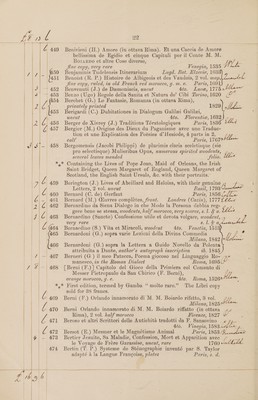 22
449 Benivieni (H.) Amore (in ottava Rima). Et una Caccia de Amore bellissima de Egidio et cinque Capituli per il Conte M. M. BELLARDO et altre Cose diverse, fine copy, very rare Vinegia, 1535
450 Benjaminis Tudelensis Itinerarium Lugd. Bat. Elzevir, 1633
451 Benoist (R. P.) Histoire de Albigeois et des Vaudois, 2 vol. fine copy, ruled, in old French red morocco, g. m. e. Paris, 1691
452 Benvenuti (J.) da Damomissia, uncut 4to. Lucca, 1775
453 Benzo (Ugo) Regole della Sanita et Natura de' Cibi Torino, 1620
454 Berchet (G.) Le Fantasie, Romanza (in ottava Rima), privately printed 1829
455 Berigardi (C.) Dubitationes in Dialogum Galilæi Galilæi, uncut 4to. Florentiæ, 1632
456 Berger de Xivrey (J.) Traditions Tératologiques Paris, 1836
457 Bergier (M.) Origine des Dieux du Paganisme avec une Traduction et une Explication des Poemes d'Hesiode, 4 parts in 2. calf Paris, 1767
458 Bergomensis (Jacobi Philippi) de plurimis claris sceletisque (sic pro selectisque) Mulieribus Opus, numerous spirited woodcuts, several leaves mended folio.
*** Containing the Lives of Pope Joan, Maid of Orleans, the Irish Saint Bridget, Queen Margaret of England, Queen Margaret of Scotland, the English Saint Ursula, &c. with their portraits.
459 Barington (J.) Lives of Abeillard and Heloisa, with their genuine Letters, 2 vol. uncut Basil, 1793
460 Bernard (C. de) Gerfaut Paris, 1856
461 Bernard (M.) Œuvres complètes, front. Londres (Cazin), 1777
462 Bernardino da Siena Dialogi in che Modo la Persona debbia reggere bene se stessa, woodcuts, half morocco, very scarce, s. l. & a.
463 Bernardino (Sancto) Confessione utile et devota vulgare, woodcut, very rare s. l. & a.
464 Bernardino (S.) Vita et Miracoli, woodcut 4to. Venetia, 1513
465 Bernardoni (G.) sopra varie Lezioni della Divina Commedia Milano, 1842
466 Bernardoni (G.) sopra la Lettera a Guido Novello da Polenta attribuita a Dante, author's autograph inscription ib. 1845
467 Berneri (G.) il meo Patacca, Poema giocoso nel Linguaggio Romanesco, in the Roman Dialect Roma, 1695
468 [Berni (F.)] Capitolo del Gioco della Primiera col Comento di Messer Pietropaulo da San Chirico (F. Berni), orange morocco, g. e. Roma, 1526
*** First edition, termed by Gamba "molto rara." The Libri copy sold for 38 francs.
469 Berni (F.) Orlando innamorato di M. M. Boiardo rifatto, 3 vol. Milano, 1828
470 Berni Orlando innamorato di M. M. Boiardo riffatto (in ottava Rima), 2 vol. half morocco Firenze, 1827
471 Beroso et altri Scrittori delle Antichità tradotti da F. Sansovino 4to. Vinegia, 1583
472 Bersot (E.) Mesmer et le Magnétisme Animal Paris, 1853
473 Bertier Jésuite, Sa Maladie, Confession, Mort et Apparition avec le Voyage de Frère Garassise, uncut, rare 1760
474 Bertin (T. P.) Système de Sténographie inventé par S. Taylor adapté à la Langue Française, plates Paris, s. d.